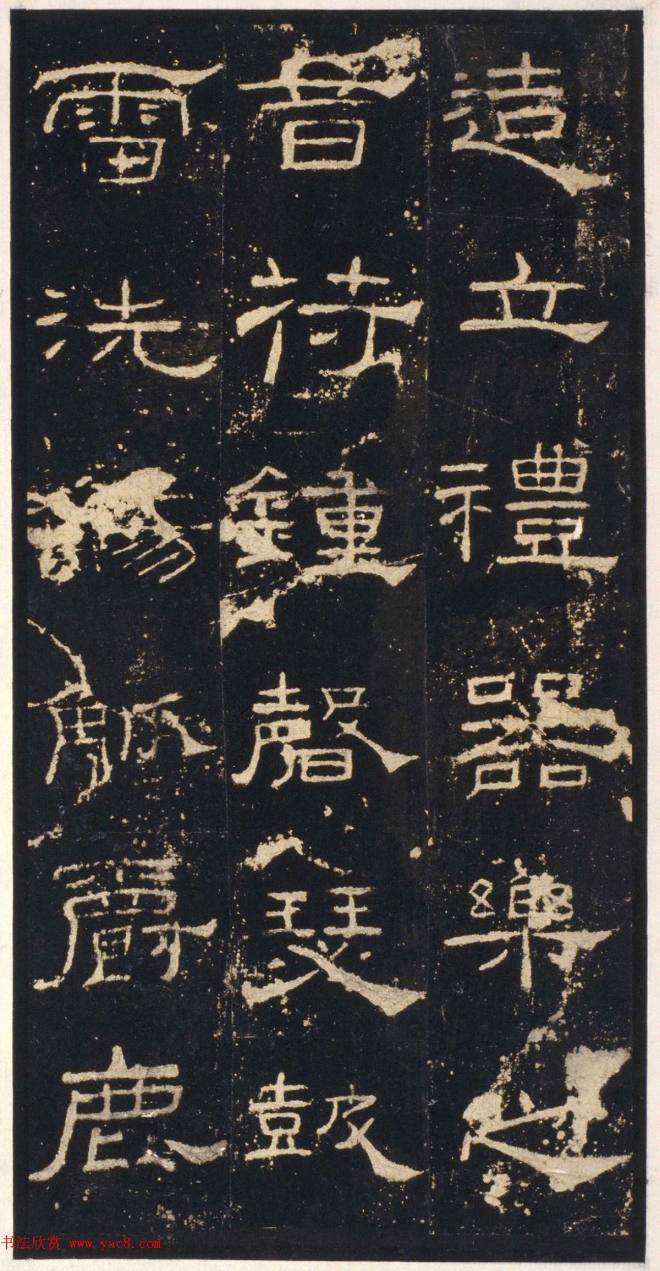 造立禮器樂之
音苻鍾磬瑟皷
雷洗觴觚爵鹿
书法欣赏 www.yac8.com